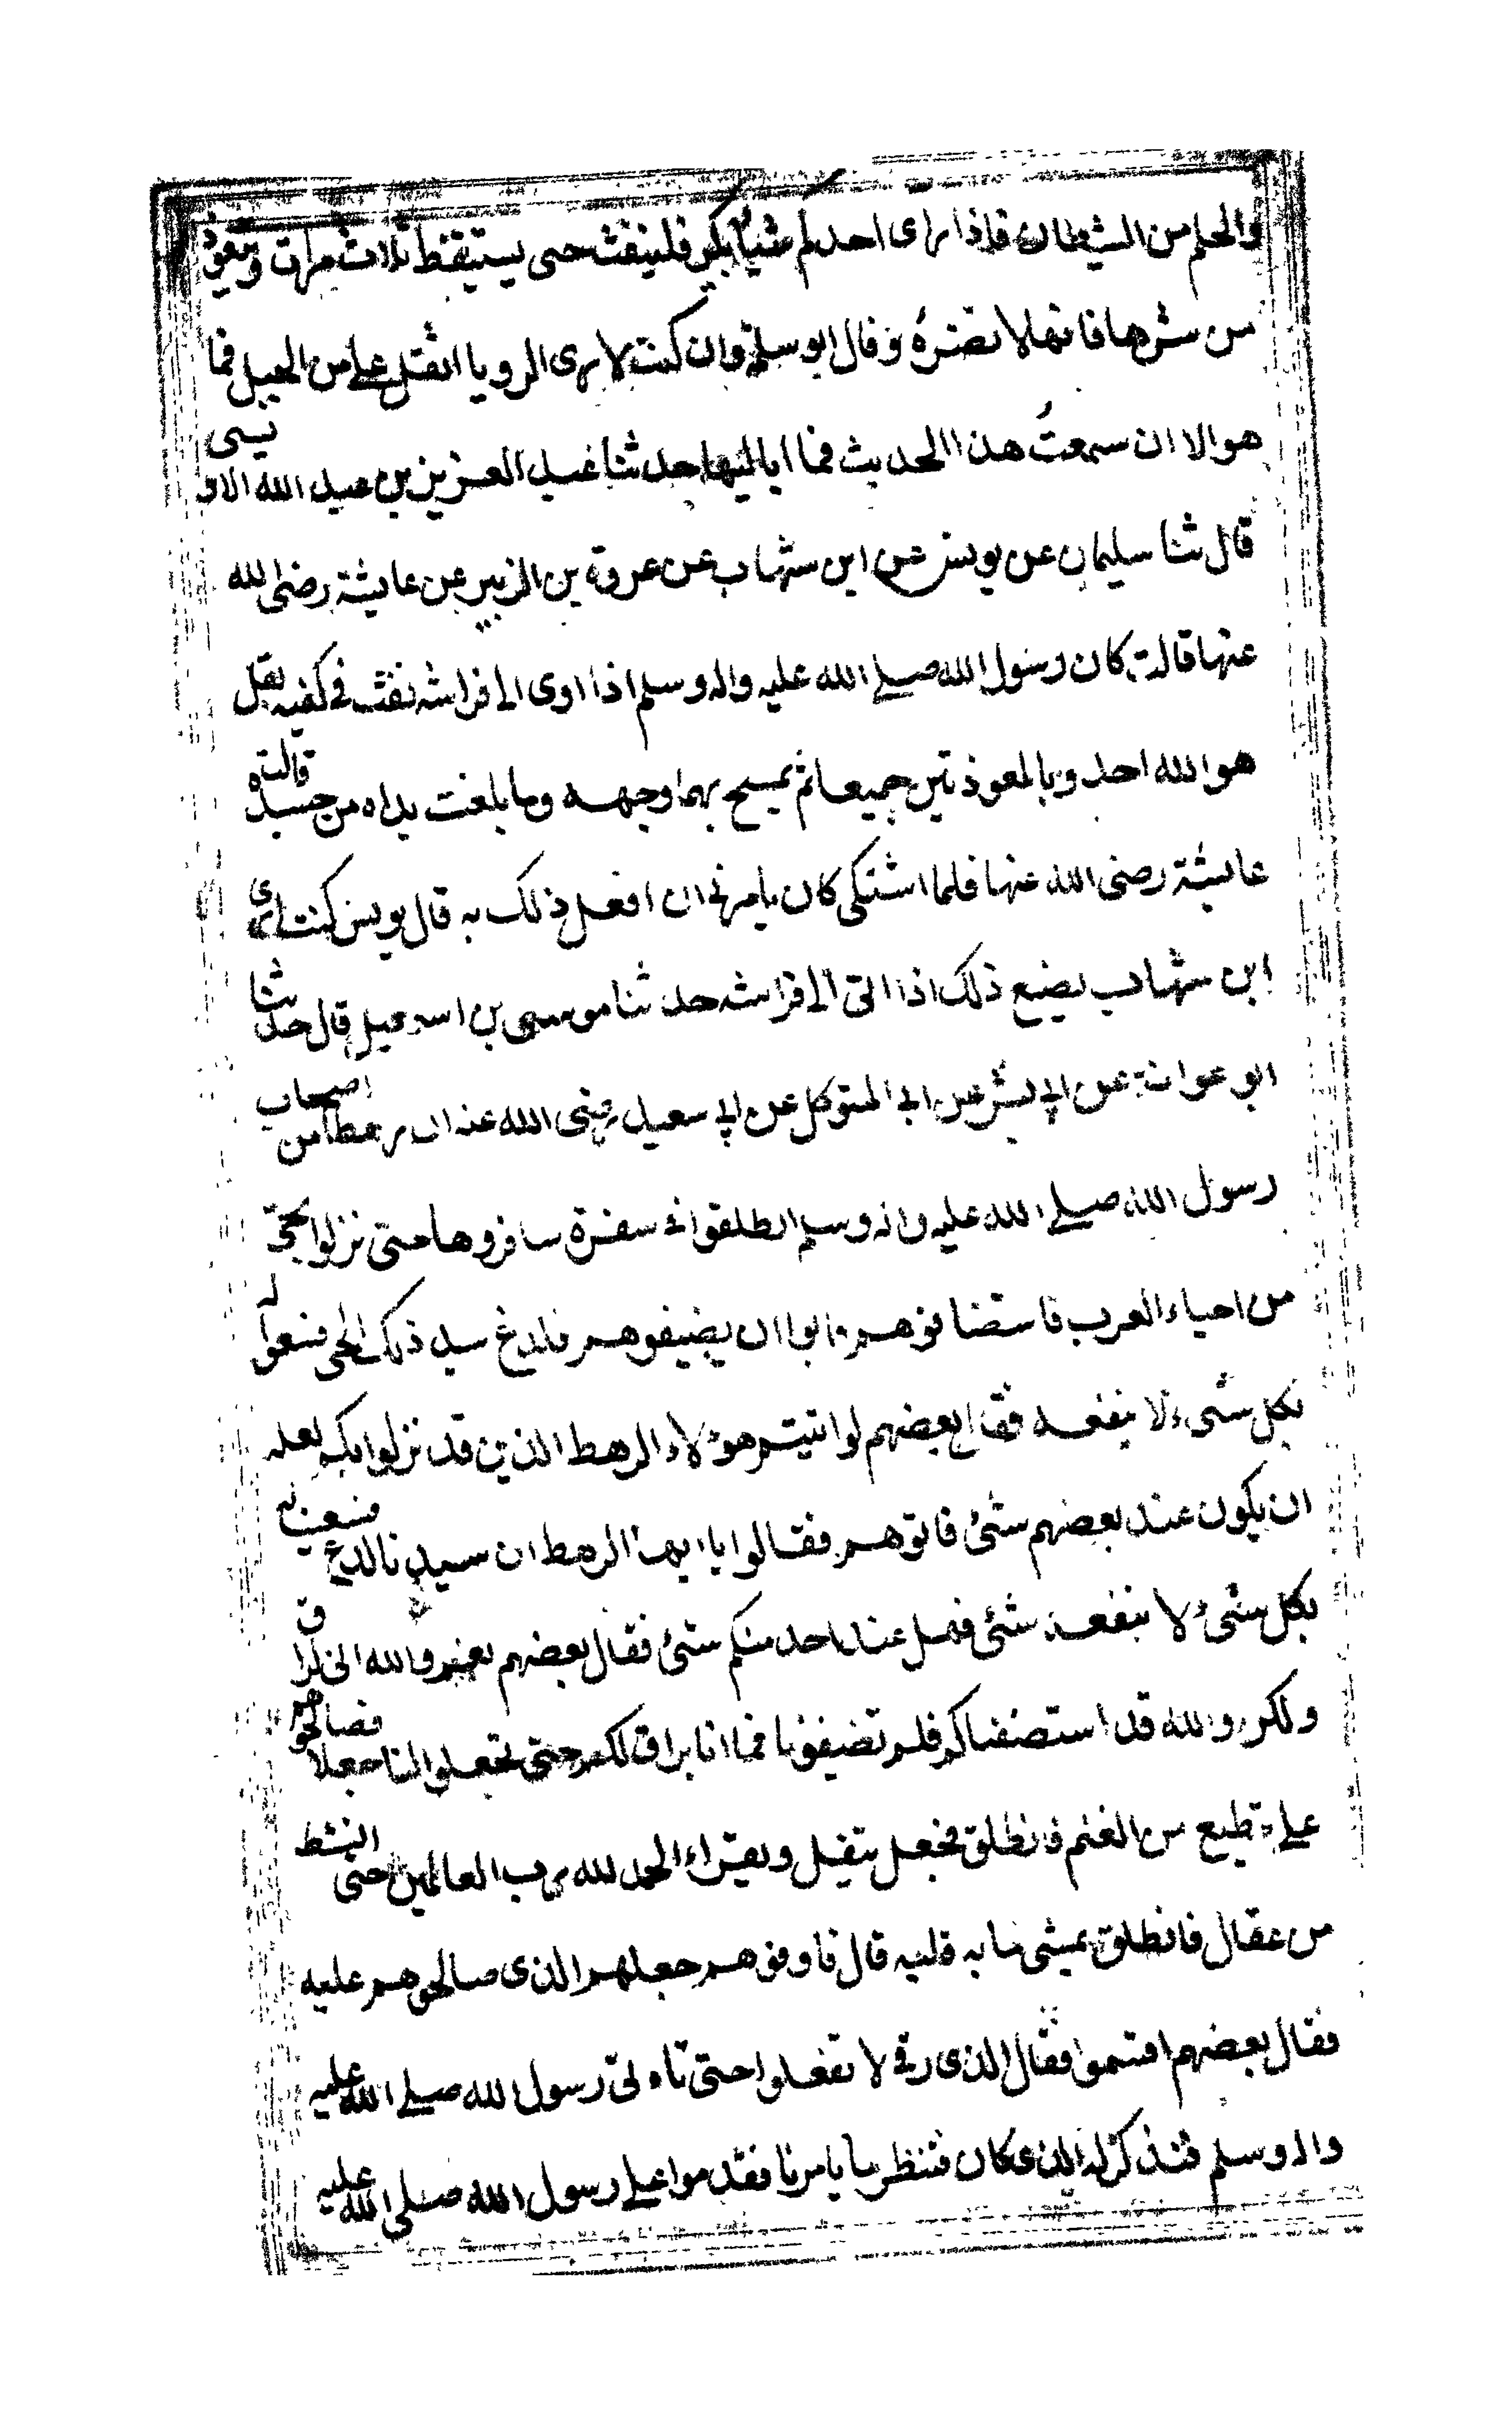 والحلم من الشيطان فاذا راى احدكم شيئا يكره فلينفث حين يستيقظ ثلاث مرات ويتعوذ
من شرها فانها لا تضره وقال ابو سلمة وان كنت لارى الرويا اثقل على من الجبل فما
هو الا ان سمعت هذا الحديث فما اباليها حدثنا عبد العزيز بن عبد الله الاويسى
قال ثنا سليمان عن يونس عن ابن شهاب عن عروة بن الزبير عن عايشة رضى الله
عنها قالت كان رسول الله صلى الله عليه واله وسلم اذا اوى الى فراشه نفث فى كفيه بقل
هو الله احد وبالمعوذتين جميعا ثم يمسح بهما وجهه وما بلغت يداه من جسده قالت
عايشة رضى الله عنها فلما اشتكى كان يامرنى ان افعل ذلك به قال يونس كنت ارى
ابن شهاب يصنع ذلك اذا اتى الى فراشه حدثنا موسى بن اسمعيل قال حدثنا
ابو عوانة عن ابى بشر عن ابى المتوكل عن ابى سعيد رضى الله عنه ان رهطا من اصحاب
رسول الله صلى الله عليه واله وسلم انطلقوا فى سفرة سافروها حتى نزلوا بحى
من احياء العرب فاستضافوهم فابوا ان يضيفوهم فلدغ سيد ذلك الحى فسعوا له
بكل شىء لا ينفعه فقال بعضهم لو اتيتم هؤلاء الرهط الذين قد نزلوا بكم لعله
ان يكون عند بعضهم شئ فاتوهم فقالوا يا ايها الرهط ان سيدنا لدغ فسعينا له
بكل شئ لا ينفعه شئ فهل عند احد منكم شئ فقال بعضهم نعم والله انى لراق
ولكن والله قد استضفناكم فلم تضيفونا فما انا براق لكم حتى تجعلوا لنا جعلا فصالحوهم
على قطيع من الغنم فانطلق فجعل يتفل ويقراء الحمد لله رب العالمين حتى النشط
من عقال فانطلق يمشى ما به قلبه قال فاوفوهم جعلهم الذى صالحوهم عليه
فقال بعضهم اقتسموا فقال الذى رقى لا تفعلوا حتى ناتى رسول الله صلى الله عليه
واله وسلم فنذكر له الذى كان فننظر ما يامرنا فقدموا على رسول الله صلى الله عليه